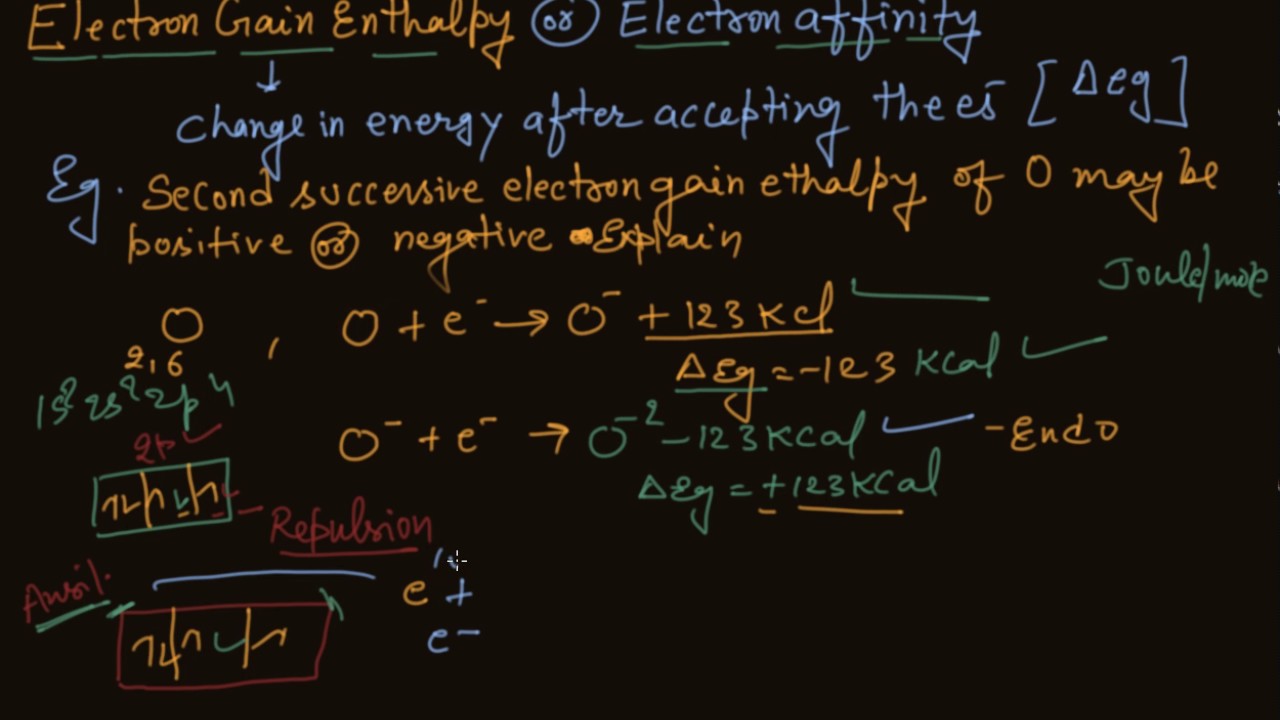 Electron Gain Enthalpy or Electron affinity
↓
Change in energy after accepting the es̄ [Δeg]
Eg. Second successive electron gain ethalpy of O may be
positive or negative Explain
Joule/mole
O , O + e⁻ → O⁻ + 123 KCl
2,6
ΔEg = -123 KCal
1s² 2s² 2p⁴
O⁻ + e⁻ → O⁻² - 123 KCal - Endo
2p
ΔEg = + 123 KCal
- Repulsion
e +
e⁻